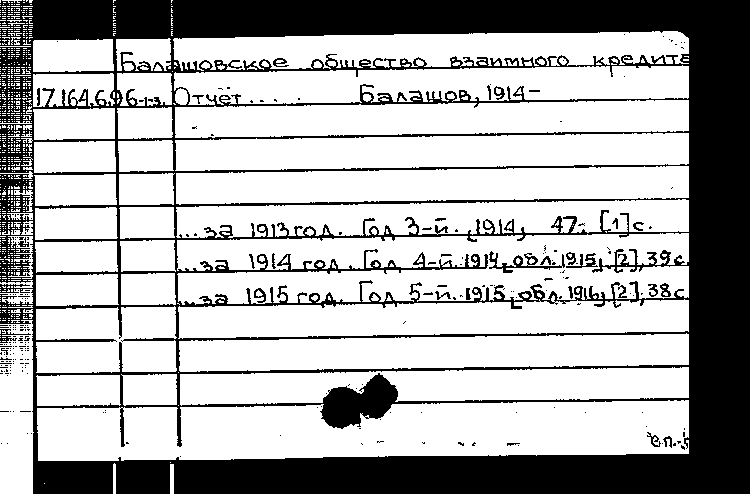 Балашовское общество взаимного кредита
17.164.6.96-1-3. Отчёт..... Балашов, 1914-
...за 1913 год. Год 3-й. [1914], 47, [1] с.
...за 1914 год. Год 4-й. 1914 [обл. 1915]. [2], 39 с.
...за 1915 год. Год 5-й. 1915 [обл. 1916], [2], 38 с.